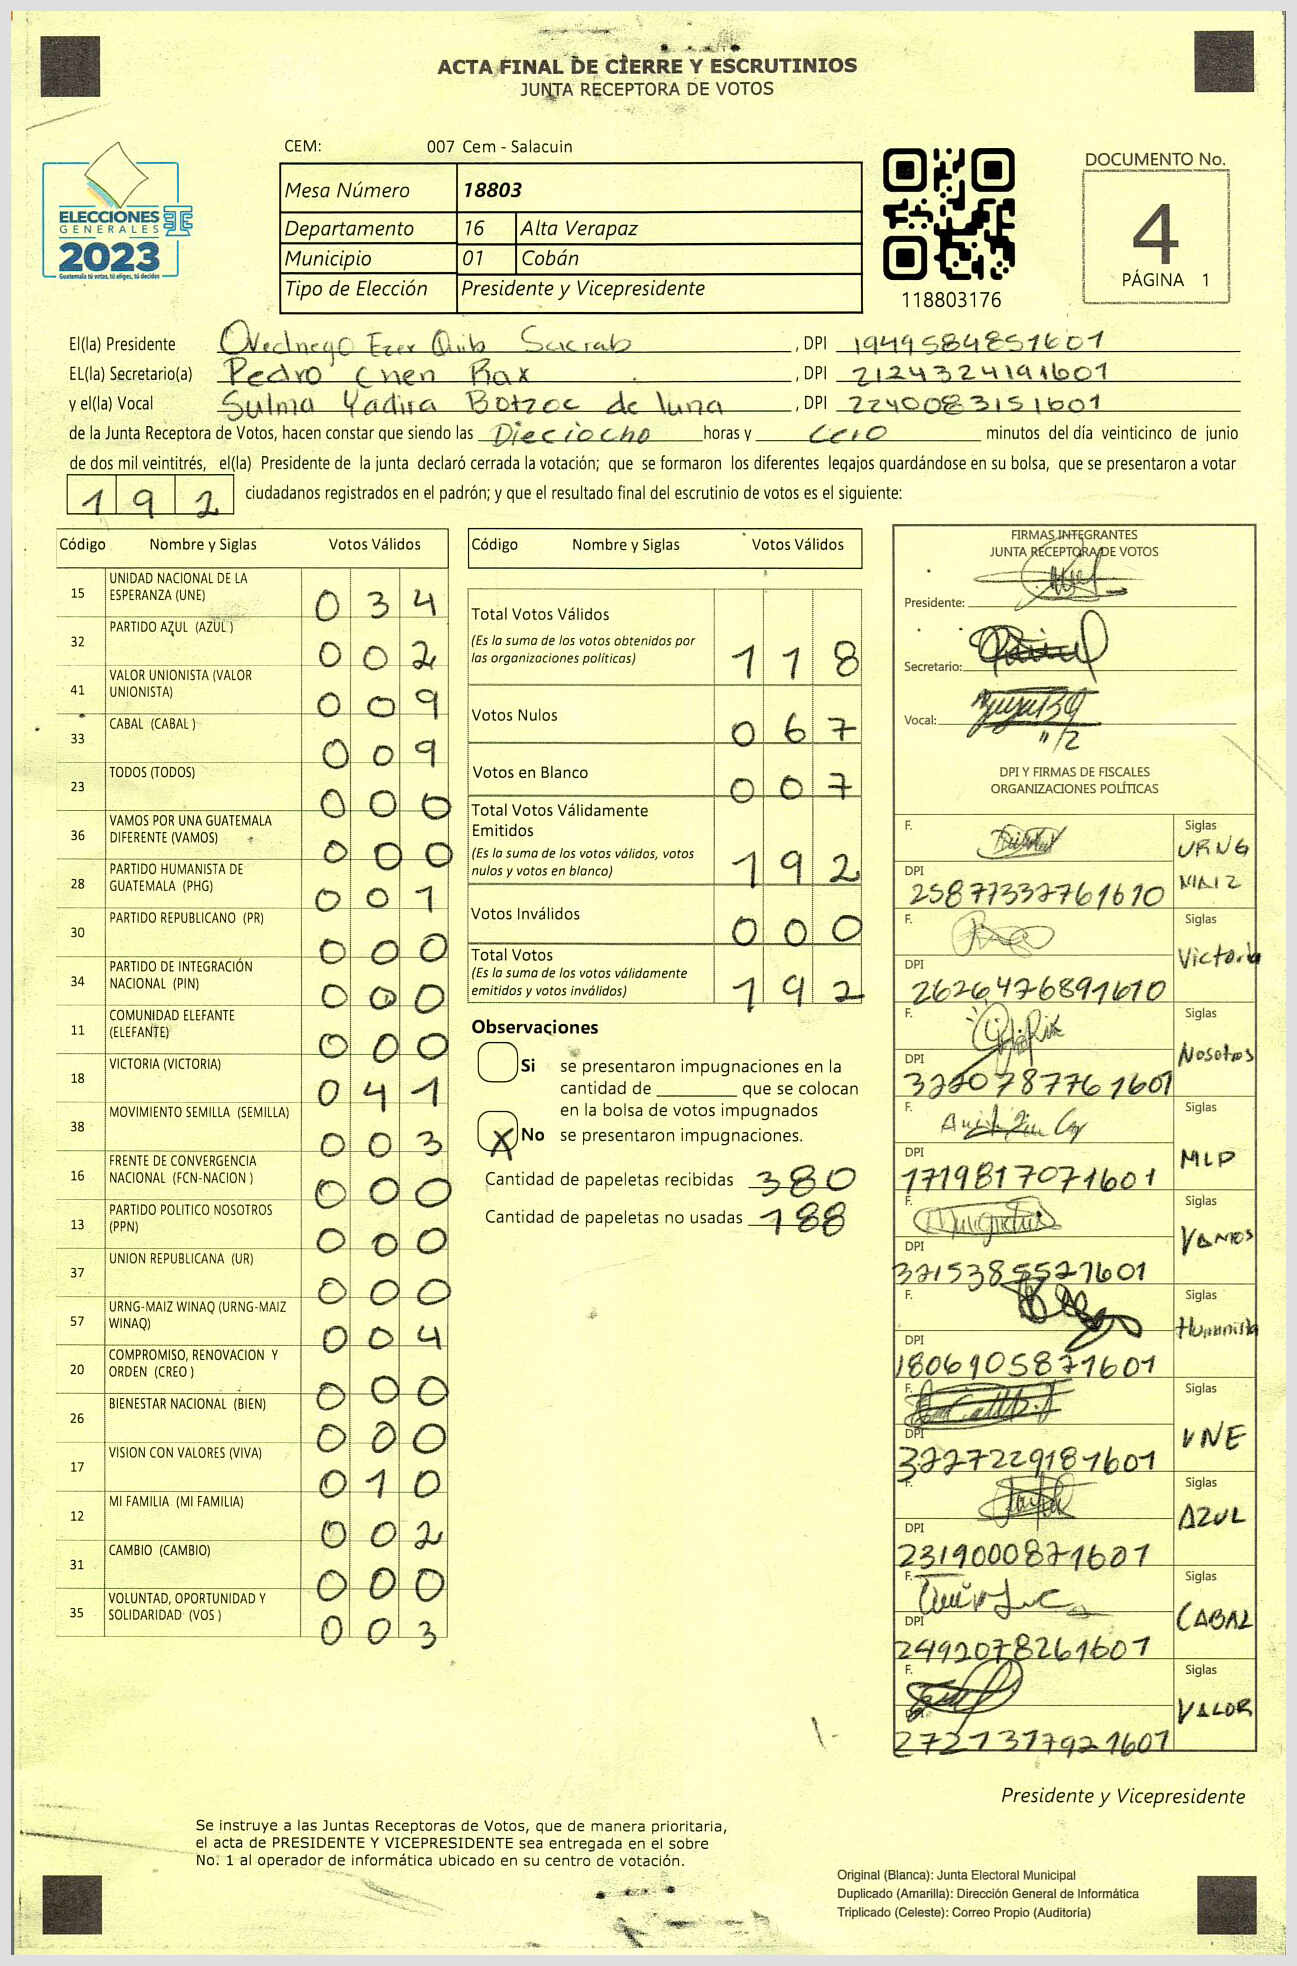 ACTA FINAL DE CIERRE Y ESCRUTINIOS
JUNTA RECEPTORA DE VOTOS
CEM: 007 Cem - Salacuin
ELECCIONES
GENERALES
2023
Guatemala tú votas, tú eliges, tú decides
Mesa Número 18803
Departamento 16 Alta Verapaz
Municipio 01 Cobán
Tipo de Elección Presidente y Vicepresidente
118803176
DOCUMENTO No.
4
PÁGINA 1
El(la) Presidente Ovednego Ezer Quib Sacrab, DPI 1949584851601
EL(la) Secretario(a) Pedro Chen Rax, DPI 2124324191601
y el(la) Vocal Sulma Yadira Botzoc de luna, DPI 2240083151601
de la Junta Receptora de Votos, hacen constar que siendo las Dieciocho horas y cero minutos del día veinticinco de junio
de dos mil veintitrés, el(la) Presidente de la junta declaró cerrada la votación; que se formaron los diferentes legajos guardándose en su bolsa, que se presentaron a votar
192 ciudadanos registrados en el padrón; y que el resultado final del escrutinio de votos es el siguiente:
Código Nombre y Siglas Votos Válidos
15 UNIDAD NACIONAL DE LA ESPERANZA (UNE) 034
32 PARTIDO AZUL (AZUL ) 002
41 VALOR UNIONISTA (VALOR UNIONISTA) 009
33 CABAL (CABAL ) 009
23 TODOS (TODOS) 000
36 VAMOS POR UNA GUATEMALA DIFERENTE (VAMOS) 000
28 PARTIDO HUMANISTA DE GUATEMALA (PHG) 001
30 PARTIDO REPUBLICANO (PR) 000
34 PARTIDO DE INTEGRACIÓN NACIONAL (PIN) 000
11 COMUNIDAD ELEFANTE (ELEFANTE) 000
18 VICTORIA (VICTORIA) 041
38 MOVIMIENTO SEMILLA (SEMILLA) 003
16 FRENTE DE CONVERGENCIA NACIONAL (FCN-NACION ) 000
13 PARTIDO POLITICO NOSOTROS (PPN) 000
37 UNION REPUBLICANA (UR) 000
57 URNG-MAIZ WINAQ (URNG-MAIZ WINAQ) 004
20 COMPROMISO, RENOVACION Y ORDEN (CREO ) 000
26 BIENESTAR NACIONAL (BIEN) 000
17 VISION CON VALORES (VIVA) 010
12 MI FAMILIA (MI FAMILIA) 002
31 CAMBIO (CAMBIO) 000
35 VOLUNTAD, OPORTUNIDAD Y SOLIDARIDAD (VOS ) 003
Código Nombre y Siglas Votos Válidos
Total Votos Válidos 118
(Es la suma de los votos obtenidos por
las organizaciones políticas)
Votos Nulos 067
Votos en Blanco 007
Total Votos Válidamente
Emitidos 192
(Es la suma de los votos válidos, votos
nulos y votos en blanco)
Votos Inválidos 000
Total Votos 192
(Es la suma de los votos válidamente
emitidos y votos inválidos)
Observaciones
Si se presentaron impugnaciones en la
cantidad de ________ que se colocan
en la bolsa de votos impugnados
X No se presentaron impugnaciones.
Cantidad de papeletas recibidas 380
Cantidad de papeletas no usadas 188
FIRMAS INTEGRANTES
JUNTA RECEPTORA DE VOTOS
Presidente:
Secretario:
Vocal:
DPI Y FIRMAS DE FISCALES
ORGANIZACIONES POLÍTICAS
F. Siglas URNG MAIZ
DPI 2587733761610
F. Siglas Victoria
DPI 2626476891610
F. Siglas Nosotros
DPI 3220787761601
F. Siglas MLP
DPI 1719817071601
F. Siglas VAMOS
DPI 3215385521601
F. Siglas Humanista
DPI 1806905871601
F. Siglas UNE
DPI 3227229181601
F. Siglas AZUL
DPI 2319000871601
F. Siglas CABAL
DPI 2492078261601
F. Siglas VALOR
DPI 2721317921601
Presidente y Vicepresidente
Se instruye a las Juntas Receptoras de Votos, que de manera prioritaria,
el acta de PRESIDENTE Y VICEPRESIDENTE sea entregada en el sobre
No. 1 al operador de informática ubicado en su centro de votación.
Original (Blanca): Junta Electoral Municipal
Duplicado (Amarilla): Dirección General de Informática
Triplicado (Celeste): Correo Propio (Auditoría)